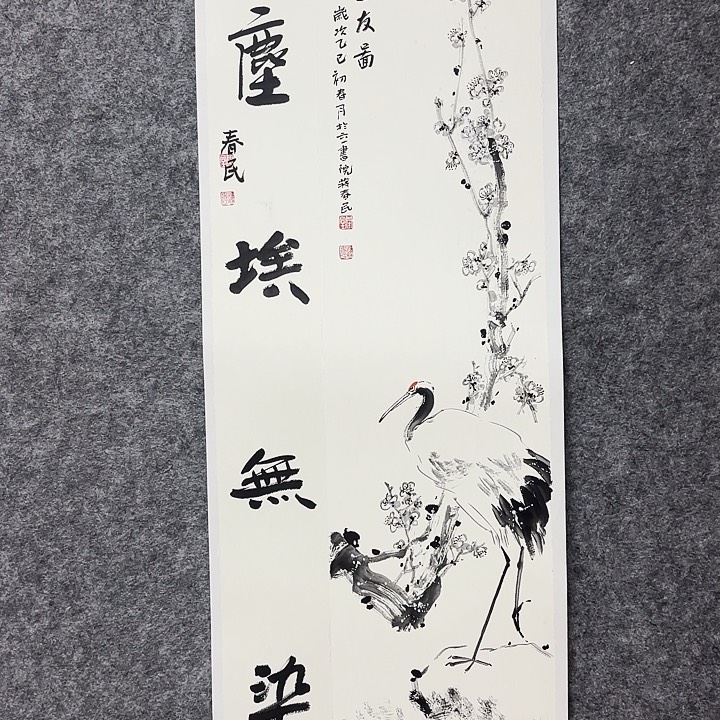 友圖
歲次乙巳初春月於六一書院蒋春民
塵埃無染
春民